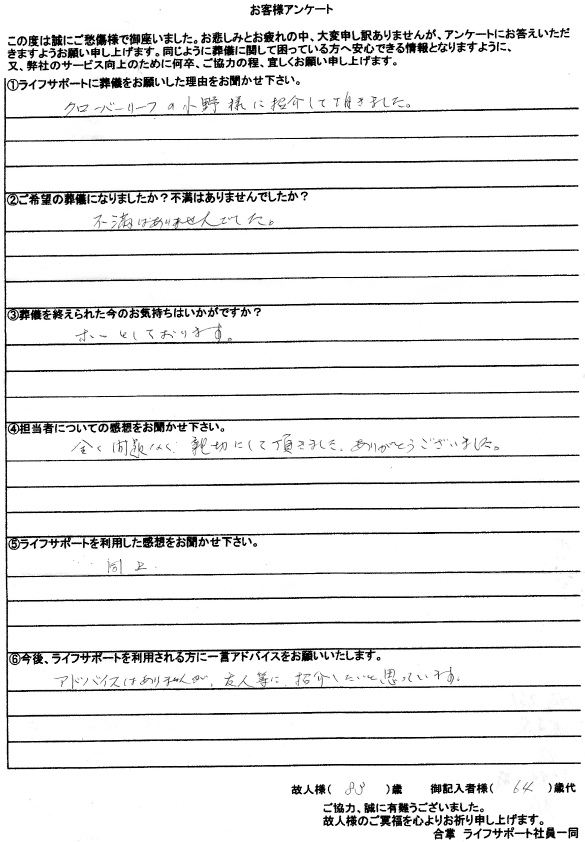 お客様アンケート
この度は誠にご愁傷様で御座いました。お悲しみとお疲れの中、大変申し訳ありませんが、アンケートにお答えいただ
きますようお願い申し上げます。同じように葬儀に関して困っている方へ安心できる情報となりますように、
又、弊社のサービス向上のために何卒、ご協力の程、宜しくお願い申し上げます。
①ライフサポートに葬儀をお願いした理由をお聞かせ下さい。
クローバーリーフの小野様に紹介して頂きました。
②ご希望の葬儀になりましたか？不満はありませんでしたか？
不満はありませんでした。
③葬儀を終えられた今のお気持ちはいかがですか？
ホーとしております。
④担当者についての感想をお聞かせ下さい。
全く問題なく、親切にして頂きました、ありがとうございました。
⑤ライフサポートを利用した感想をお聞かせ下さい。
同上
⑥今後、ライフサポートを利用される方に一言アドバイスをお願いいたします。
アドバイスはありませんが、友人等に、紹介したいと思っています。
故人様( 83 )歳 御記入者様( 64 )歳代
ご協力、誠に有難うございました。
故人様のご冥福を心よりお祈り申し上げます。
合掌 ライフサポート社員一同